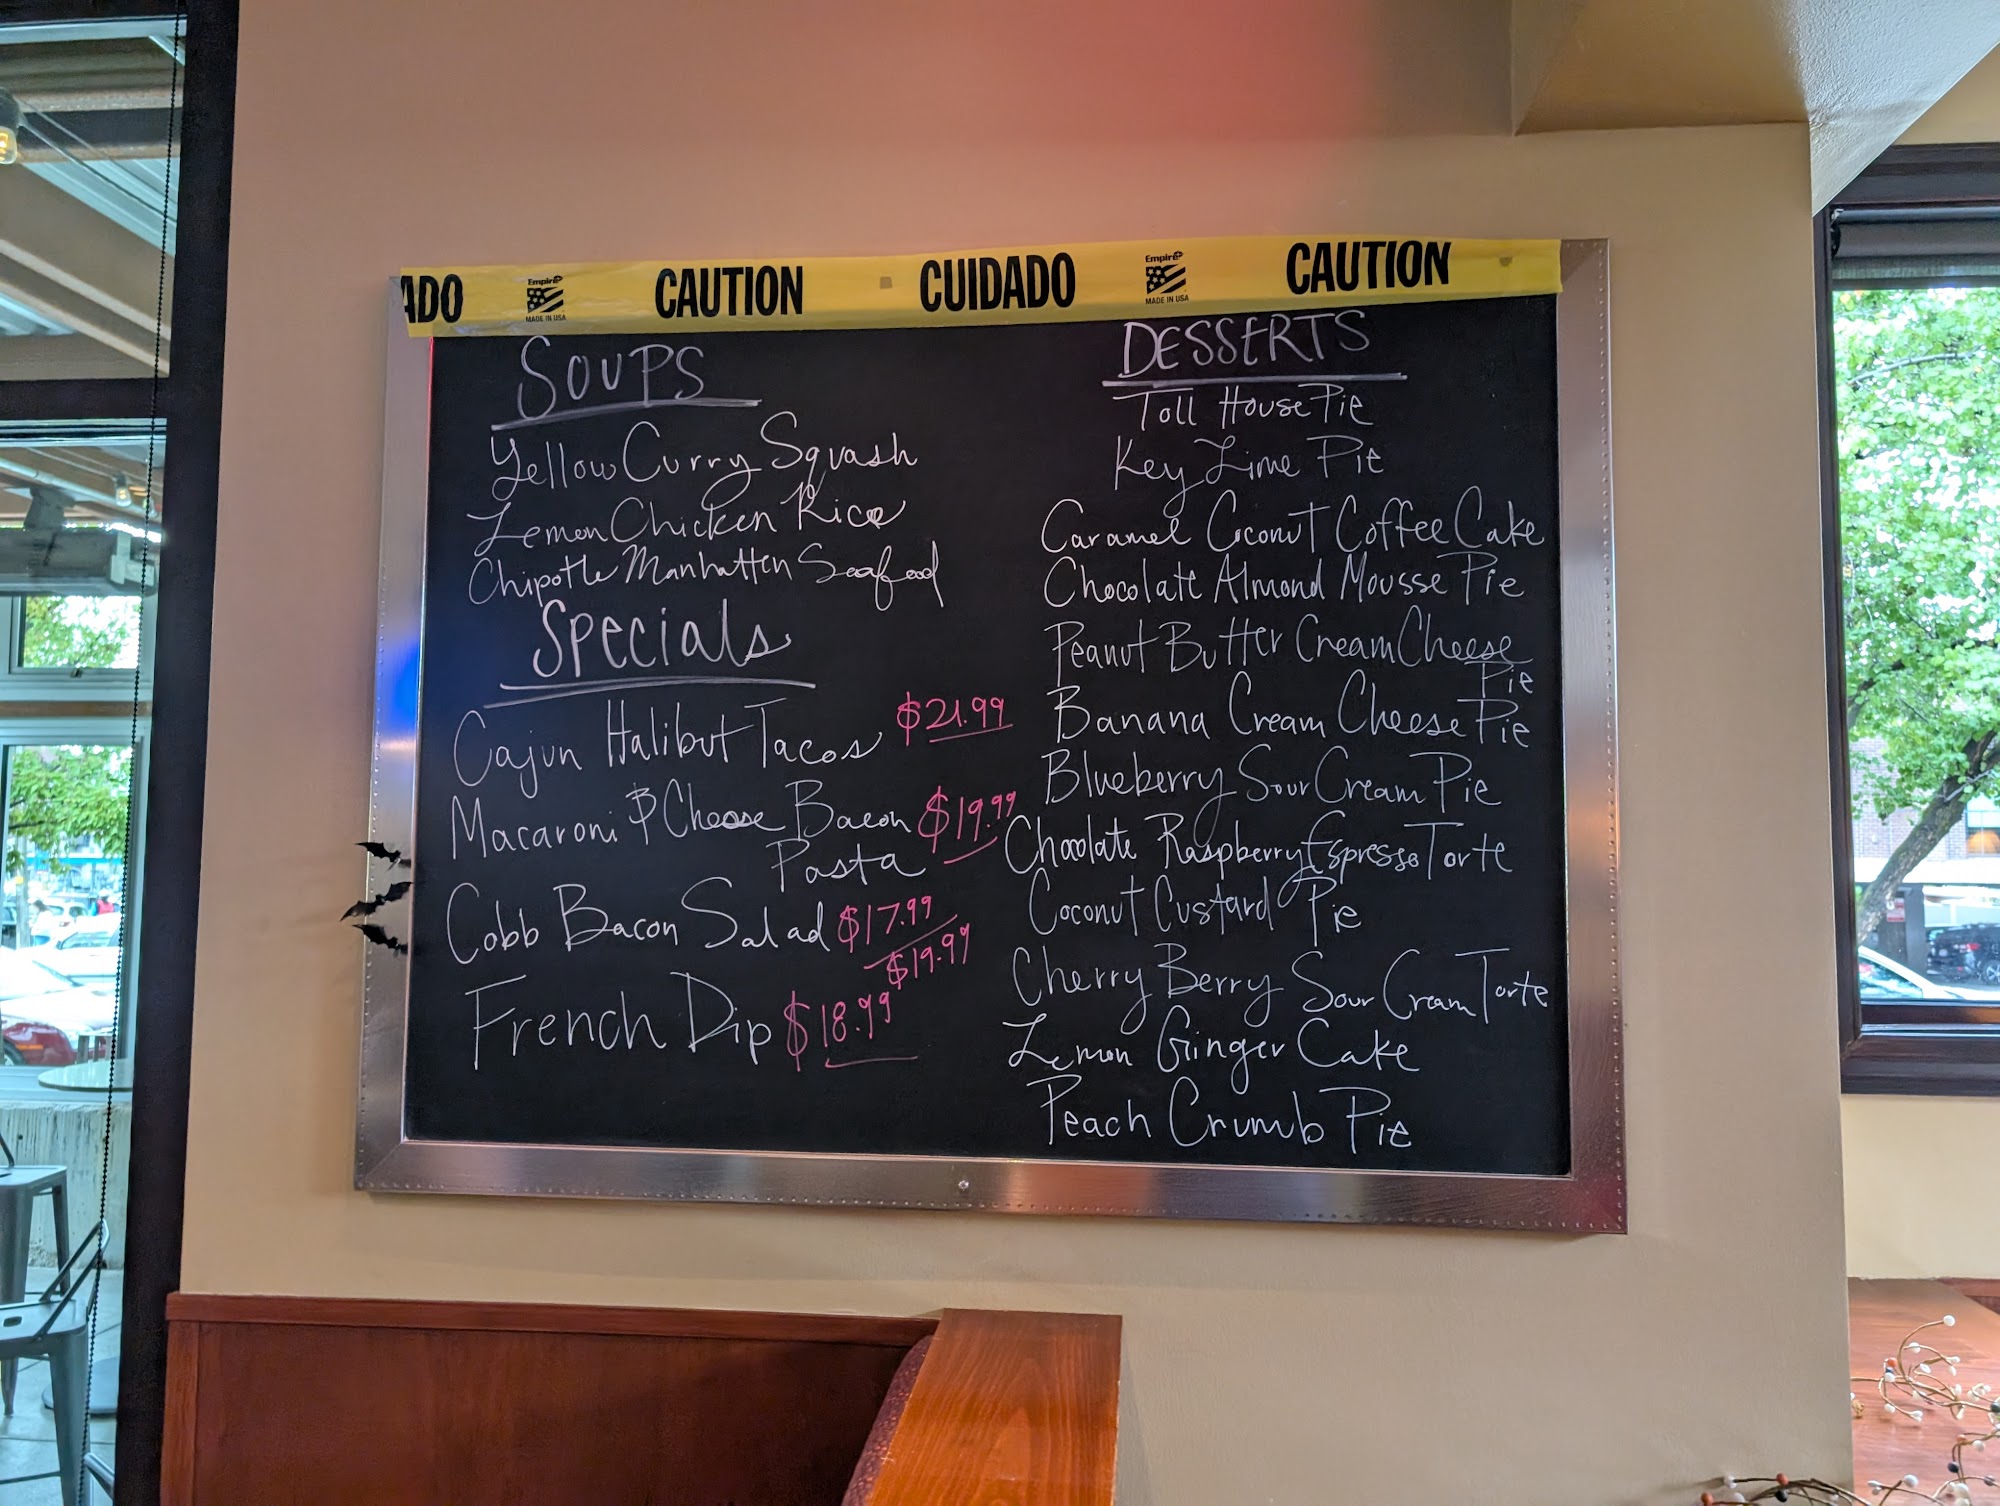 ADO Empire MADE IN USA CAUTION CUIDADO Empire MADE IN USA CAUTION
SOUPS
Yellow Curry Squash
Lemon Chicken Rice
Chipotle Manhatten Seafood
Specials
Cajun Halibut Tacos $21.99
Macaroni & Cheese Bacon $19.99
Pasta
Cobb Bacon Salad $17.99
$19.99
French Dip $18.99
DESSERTS
Toll House Pie
Key Lime Pie
Caramel Coconut Coffee Cake
Chocolate Almond Mousse Pie
Peanut Butter Cream Cheese
Pie
Banana Cream Cheese Pie
Blueberry Sour Cream Pie
Chocolate Raspberry Espresso Torte
Coconut Custard Pie
Cherry Berry Sour Cream Torte
Lemon Ginger Cake
Peach Crumb Pie